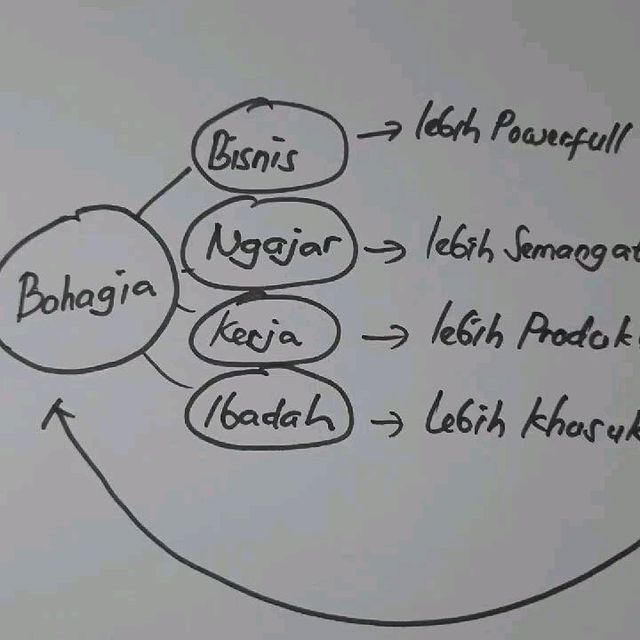 Bahagia
Bisnis → lebih Powerfull
Ngajar → lebih Semangat
Kerja → lebih Produk
Ibadah → Lebih Khusuk